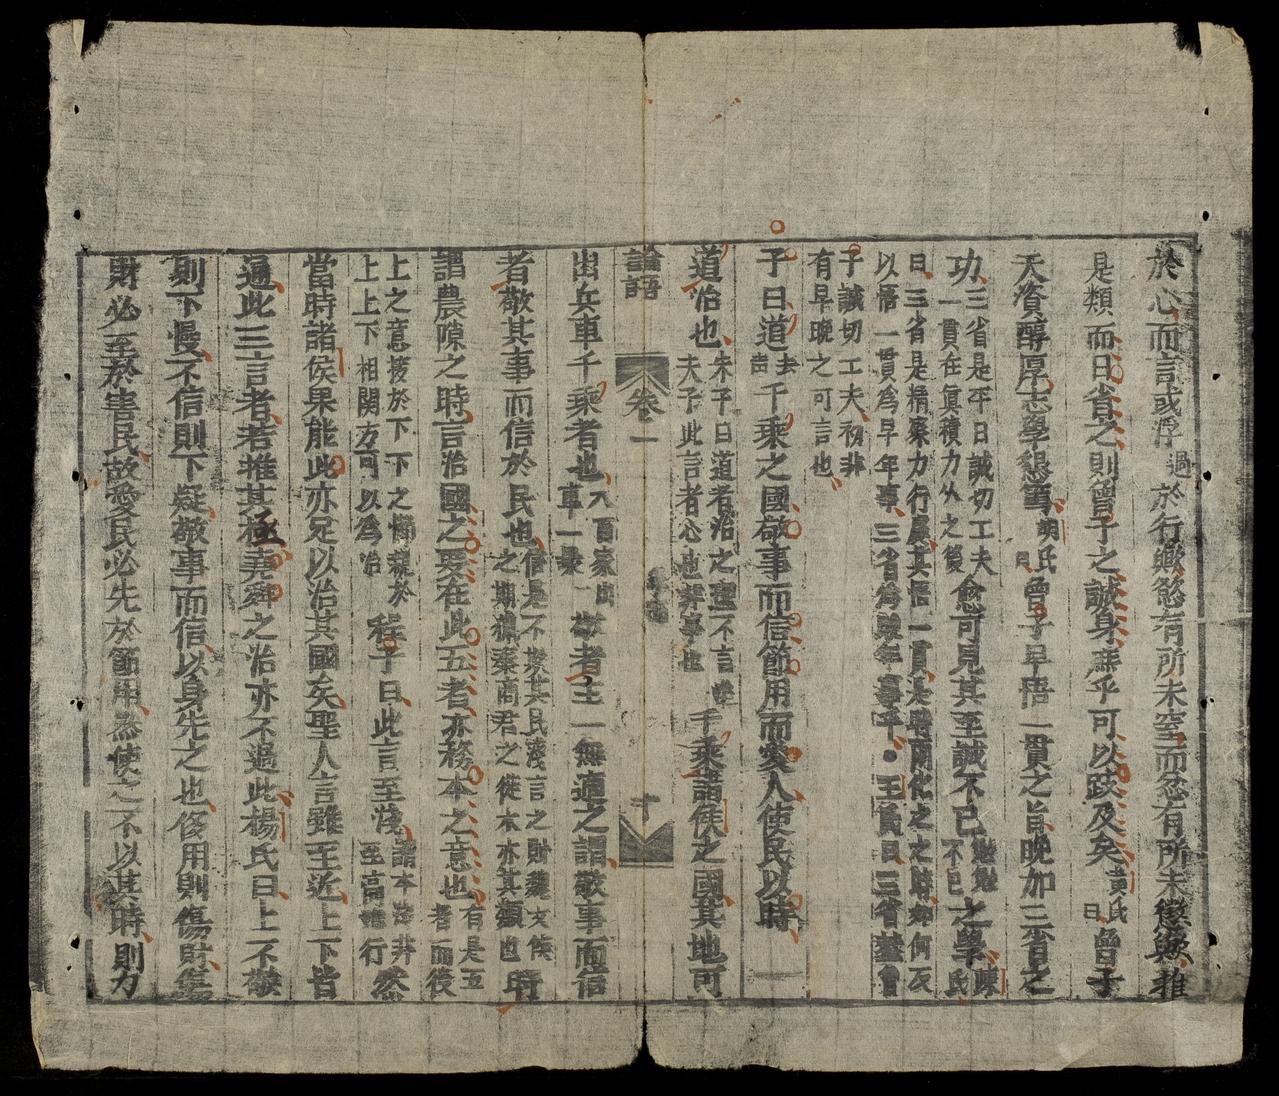 於心而言或浮過於行歟慾有所未窒而忿有所未懲歟推
是類而日省之則曾子之誠身庶乎可以跂及矣黃氏曰曾子
天資醇厚志學懇篤胡氏曰曾子早悟一貫之旨晚加三省之
功三省是平日誠切工夫一貫在眞積力久之後愈可見其至誠不已勉勉不已之學陳氏
曰三省是精察力行處其悟一貫是時雨化之之時如何反
以悟一貫爲早年事三省爲晚年事乎●王氏曰三省蓋曾
子誠切工夫初非
有早晚之可言也
子曰道去聲千乘之國敬事而信節用而愛人使民以時
道治也朱子曰道者治之理不言政夫子此言者心也非事也千乘諸侯之國其地可
論語
卷一
十
出兵車千乘者也八百家出車一乘敬者主一無適之謂敬事而信
者敬其事而信於民也信是不欺其民淺言之則魏文侯之期獵秦商君之徙木亦其類也時
謂農隙之時言治國之要在此五者亦務本之意也有是五者而後
上之意接於下下之情親於上上下相關方可以爲治程子曰此言至淺諸本淺非至高難行然
當時諸侯果能此亦足以治其國矣聖人言雖至近上下皆
通此三言者若推其極堯舜之治亦不過此楊氏曰上不敬
則下慢不信則下疑敬事而信以身先之也侈用則傷財傷
財必至於害民故愛民必先於節用然使之不以其時則力